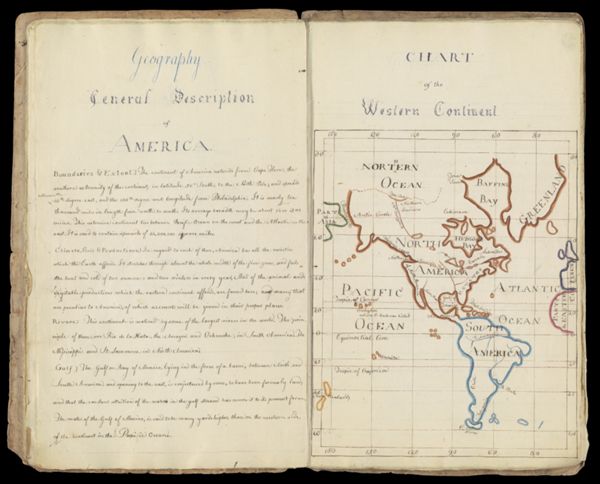 Geography
General Description
of
AMERICA.
Boundaries & Extent.) The continent of America extends from Cape Horn, the
southern extremity of the continent, in latitude 56° South, to the North Pole; and spreads
degree east, and the degree west longitude from Philadelphia. It is nearly ten
thousand miles in length from north to south. Its average breadth may be about
miles. This extensive continent lies between the Pacific Ocean on the west and the Atlantic on the
east. It is said to contain upwards of square miles.
Climate, Soil & Productions.) In regard to each of these, America has all the varieties
which the Earth affords. It stretches through almost the whole width of the five zones, and feels
the heat and cold of two summers and two winters in every year. Most of the animal and
vegetable productions which the eastern continent affords, are found here; and many that
are peculiar to America, of which account will be given in their proper places.
Rivers. This continent is watered by some of the largest rivers in the world. The prin-
ciple of these, are Rio de la Plata, the Amazon and Oronoke, in South America; The
Mississippi and St. Lawrence in North America.
Gulf.) The Gulf or Bay of Mexico, lying in the form of a bason, between North and
South America, and opening to the east, is conjectured by some, to have been formerly land;
and that the constant attrition of the waters in the gulf stream has worn it to its present form.
The water of the Gulf of Mexico, is said to be many yards higher than on the western side
of the continent in the Pacific Ocean.
CHART
of the
Western Continent.
NORTERN
OCEAN
BAFFINS
BAY
GREENLAND
PART
ASIA
Arctic Circle
HUDSONS
BAY
NORTH
AMERICA
PACIFIC
OCEAN
ATLANTIC
OCEAN
Tropic of Cancer
Equinoctial Line
SOUTH
AMERICA
Tropic of Capricorn